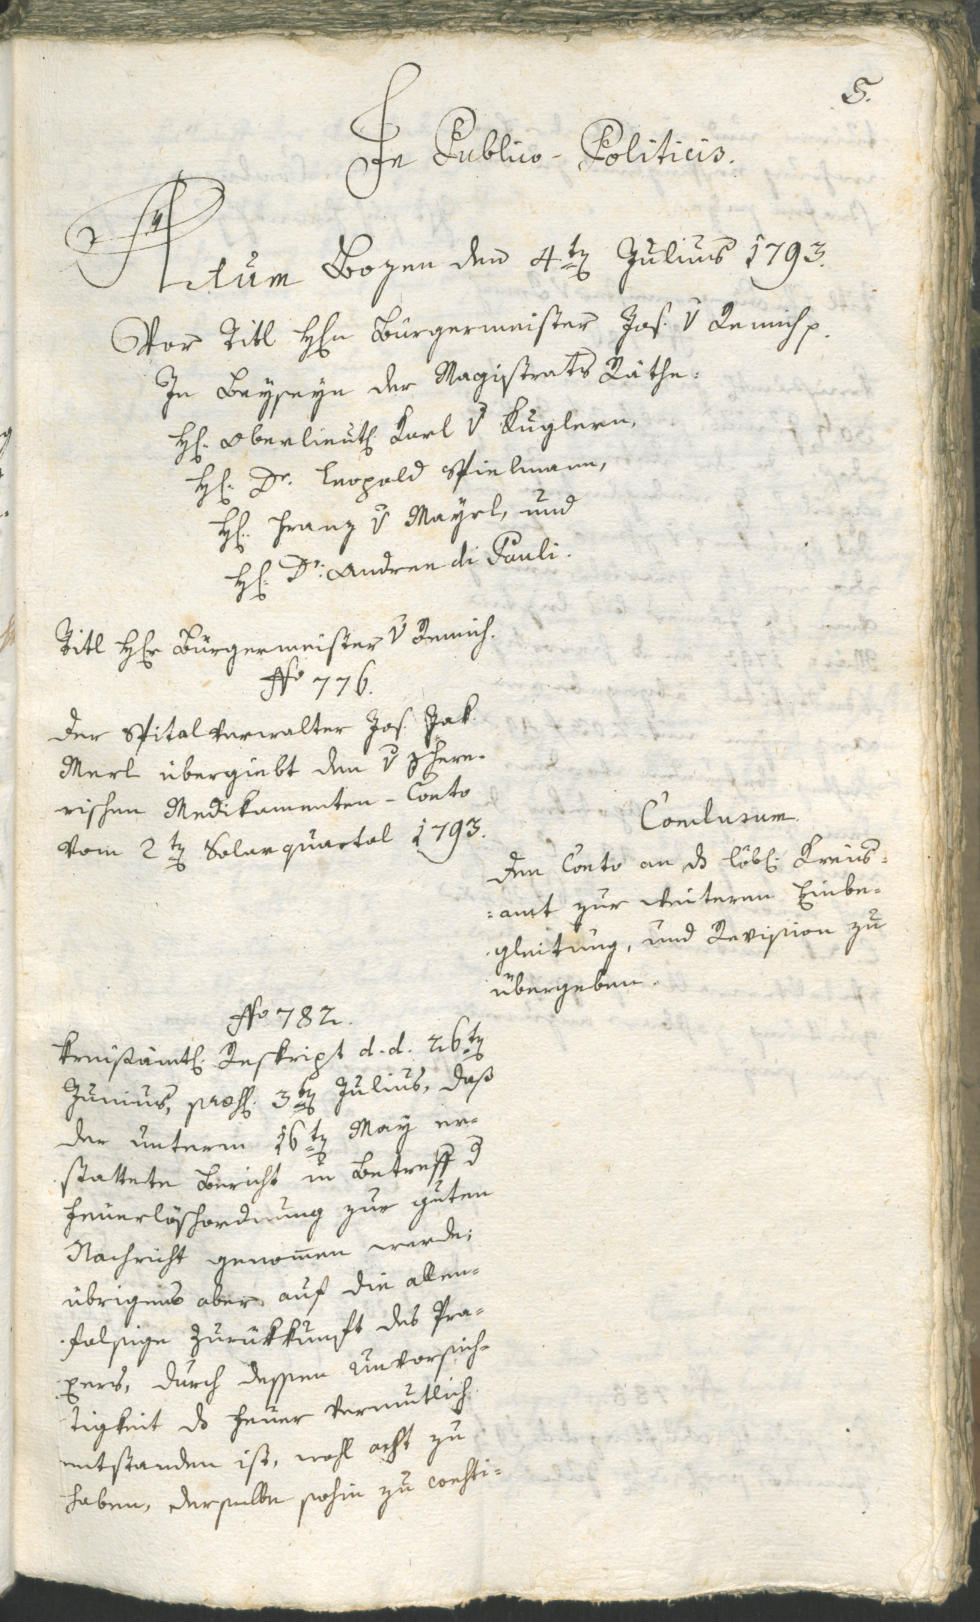 5.
In Publico-Politicis.
Actum Bozen den 4ten Julius 1793.
Vor Titl Hhn Bürgermeister Jos. v Remich p.
In Beyseyn der Magistrats Räthe:
H. Oberlieut. Karl v Kuglern,
H. Dr. Leopold Spielmann,
H. Franz v Mayrl, und
H. Dr. Andree di Pauli.
Titl Hhr Bürgermeister v Remich.
No 776.
Der Spitalverwalter Jos. Jak.
Merl übergiebt den v Schere-
rischen Medikamenten-Conto
vom 2ten Solarquartal 1793.
Conclusum.
Den Conto an ds löbl. Kreis-
=amt zur weiteren Einbe-
gleitung, und Revision zu
übergeben.
No 782.
Kreisämtl. Reskript d.d. 26ten
Junius, præs. 3ten Julius, daß
der unterm 16ten May er-
stattete Bericht in Betreff d
Feuerlöschordnung zur guten
Nachricht genommen werde;
übrigens aber auf die allen-
falsige Zurükkunft des Pra-
xers, durch dessen Unvorsich-
tigkeit ds Feuer vermutlich
entstanden ist, wohl acht zu
haben, derselbe sohin zu consti-